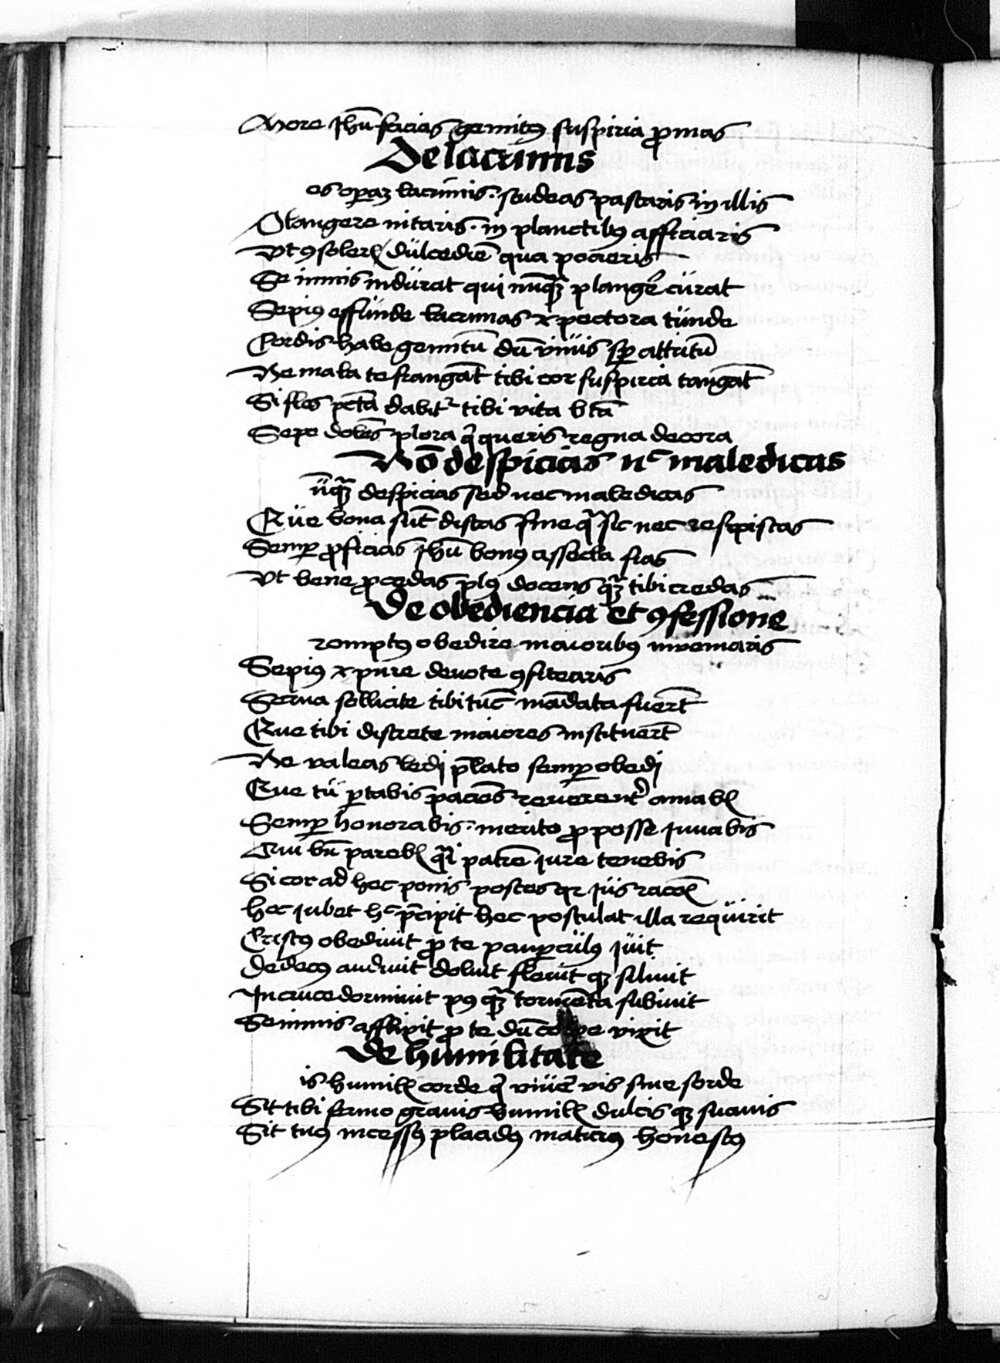 More Jhu facias gemitus suspiria promas
De lacrimis
os opaz lacrimis studeas pascaris in illis
Plangere nitaris in planctibus afficiaris
Ut solerℓ dulcedie qua pocieris
Se nimis indurat qui nuqz plangere curat
Sepius effunde lacrimas & pectora tunde
Cordis habe gemitu du vivis sp attritu
Ne mala te frangat tibi cor suspiria tangat
Si fles pcta dabitr tibi vita bta
Sepe dolens plora q queris regna decora
No despicias nc maledicas
uqz despicias sed nec maledicas
Que bona sut discas sine q sic nec resipiscas
Semp proficias Jhu bonus assecla fias
Ut bene procedas plus docens qz tibi credas
De obediencia et 9fessione
romptus obedire maioribus inveniaris
Sepius & pure devote 9fitearis
Serva sollicite tibi tuc madata fuert
Que tibi discrete maiores instituert
Ne valeas ledi plato semp obedi
Que tu portabis paciens reverent amabℓ
Semp honorabis merito pro posse iuvabis
Cui bn parebℓ qi patre iure teneris
Si cor ad hec ponis postes qr ius racoℓ
Hec iubet hc precipit hec postulat illa requirit
Cristus obedivit pro te pauperculus ivit
Dedecus audivit doluit flevit qz siluit
In cruce dormivit pus qz tormenta subivit
Se nimis afflixit pro te du corpe vixit
De humilitate
is humilℓ corde q vivere vis sine sorde
Sit tibi sermo gravis humilℓ dulcis qz suavis
Sit tuus incessus placidus maturus honestus